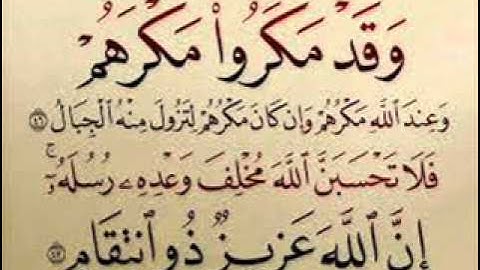 وَقَدْ مَكَرُوا۟ مَكْرَهُمْ
وَعِندَ ٱللَّهِ مَكْرُهُمْ وَإِن كَانَ مَكْرُهُمْ لِتَزُولَ مِنْهُ ٱلْجِبَالُ ﴿٤٦﴾
فَلَا تَحْسَبَنَّ ٱللَّهَ مُخْلِفَ وَعْدِهِۦ رُسُلَهُۥٓ ۗ
إِنَّ ٱللَّهَ عَزِيزٌ ذُو ٱنتِقَامٍ ﴿٤٧﴾